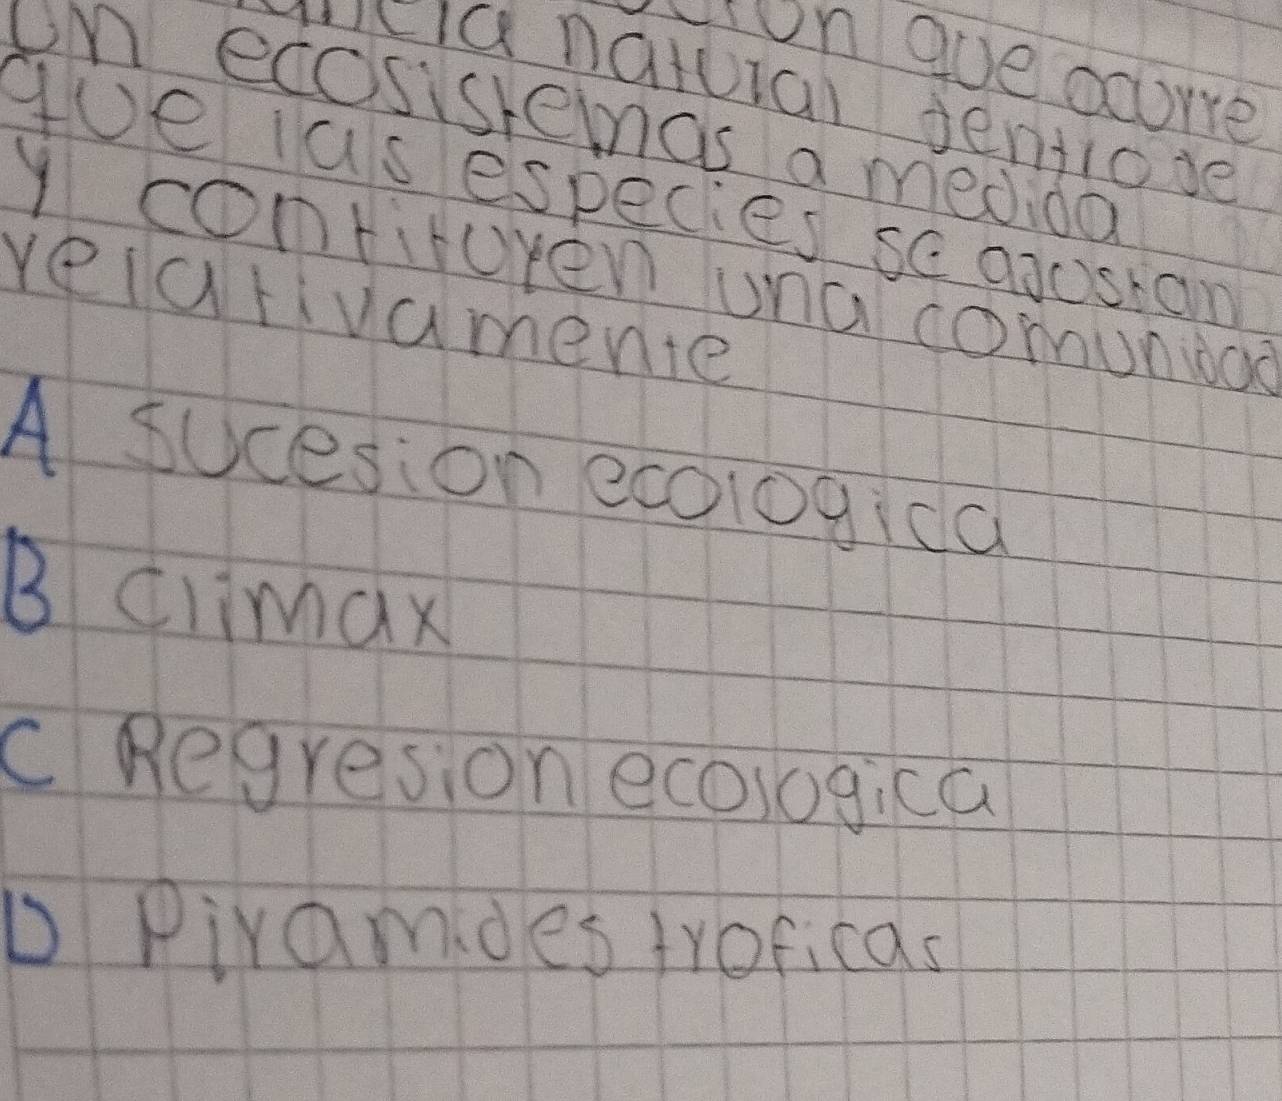 que ocurre
natural dentro de
un ecosistemas a medida
que las especies se ajustan
y contituyen una comunidad
relativamente
A sucesion ecologica
B climax
C Regresion ecologica
D Piramides troficas